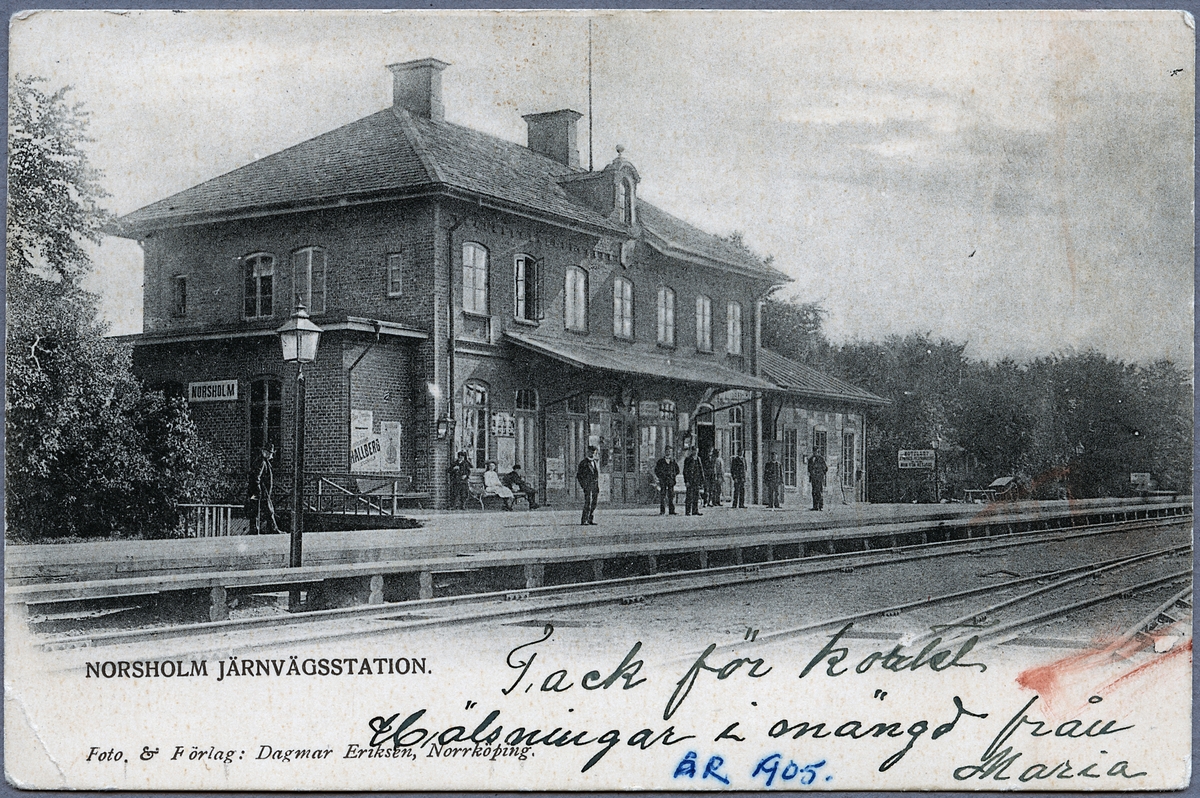 NORSHOLM
HALLBERG
NORSHOLM JÄRNVÄGSSTATION.
Tack för kortet
Hälsningar i mängd från
Foto. & Förlag: Dagmar Eriksen, Norrköping.
ÅR 1905.
Maria